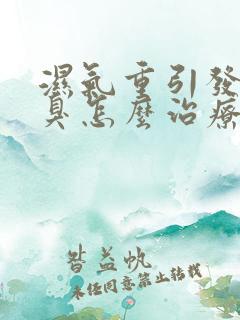 濕氣重引發
臭怎麼治療
皆益帆
未经同意禁止转载